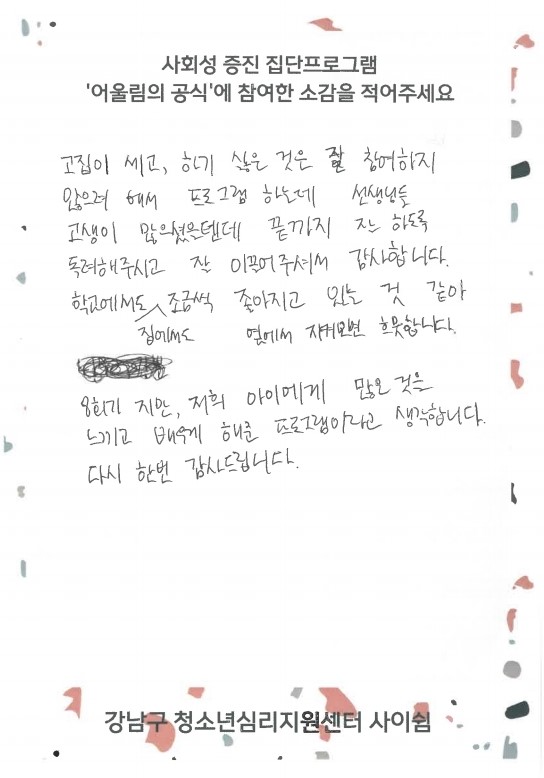 사회성 증진 집단프로그램
'어울림의 공식'에 참여한 소감을 적어주세요
고집이 세고, 하기 싫은 것은 잘 참여하지
않으려 해서 프로그램 하는데 선생님들
고생이 많으셨을텐데 끝까지 잘 하도록
독려해주시고 잘 이끌어주셔서 감사합니다.
학교에서도 조금씩 좋아지고 있는 것 같아
집에서도 옆에서 지켜보면 흐뭇합니다.
8회기 지만, 저희 아이에게 많은 것을
느끼고 배우게 해준 프로그램이라고 생각합니다.
다시 한번 감사드립니다.
강남구 청소년심리지원센터 사이쉼